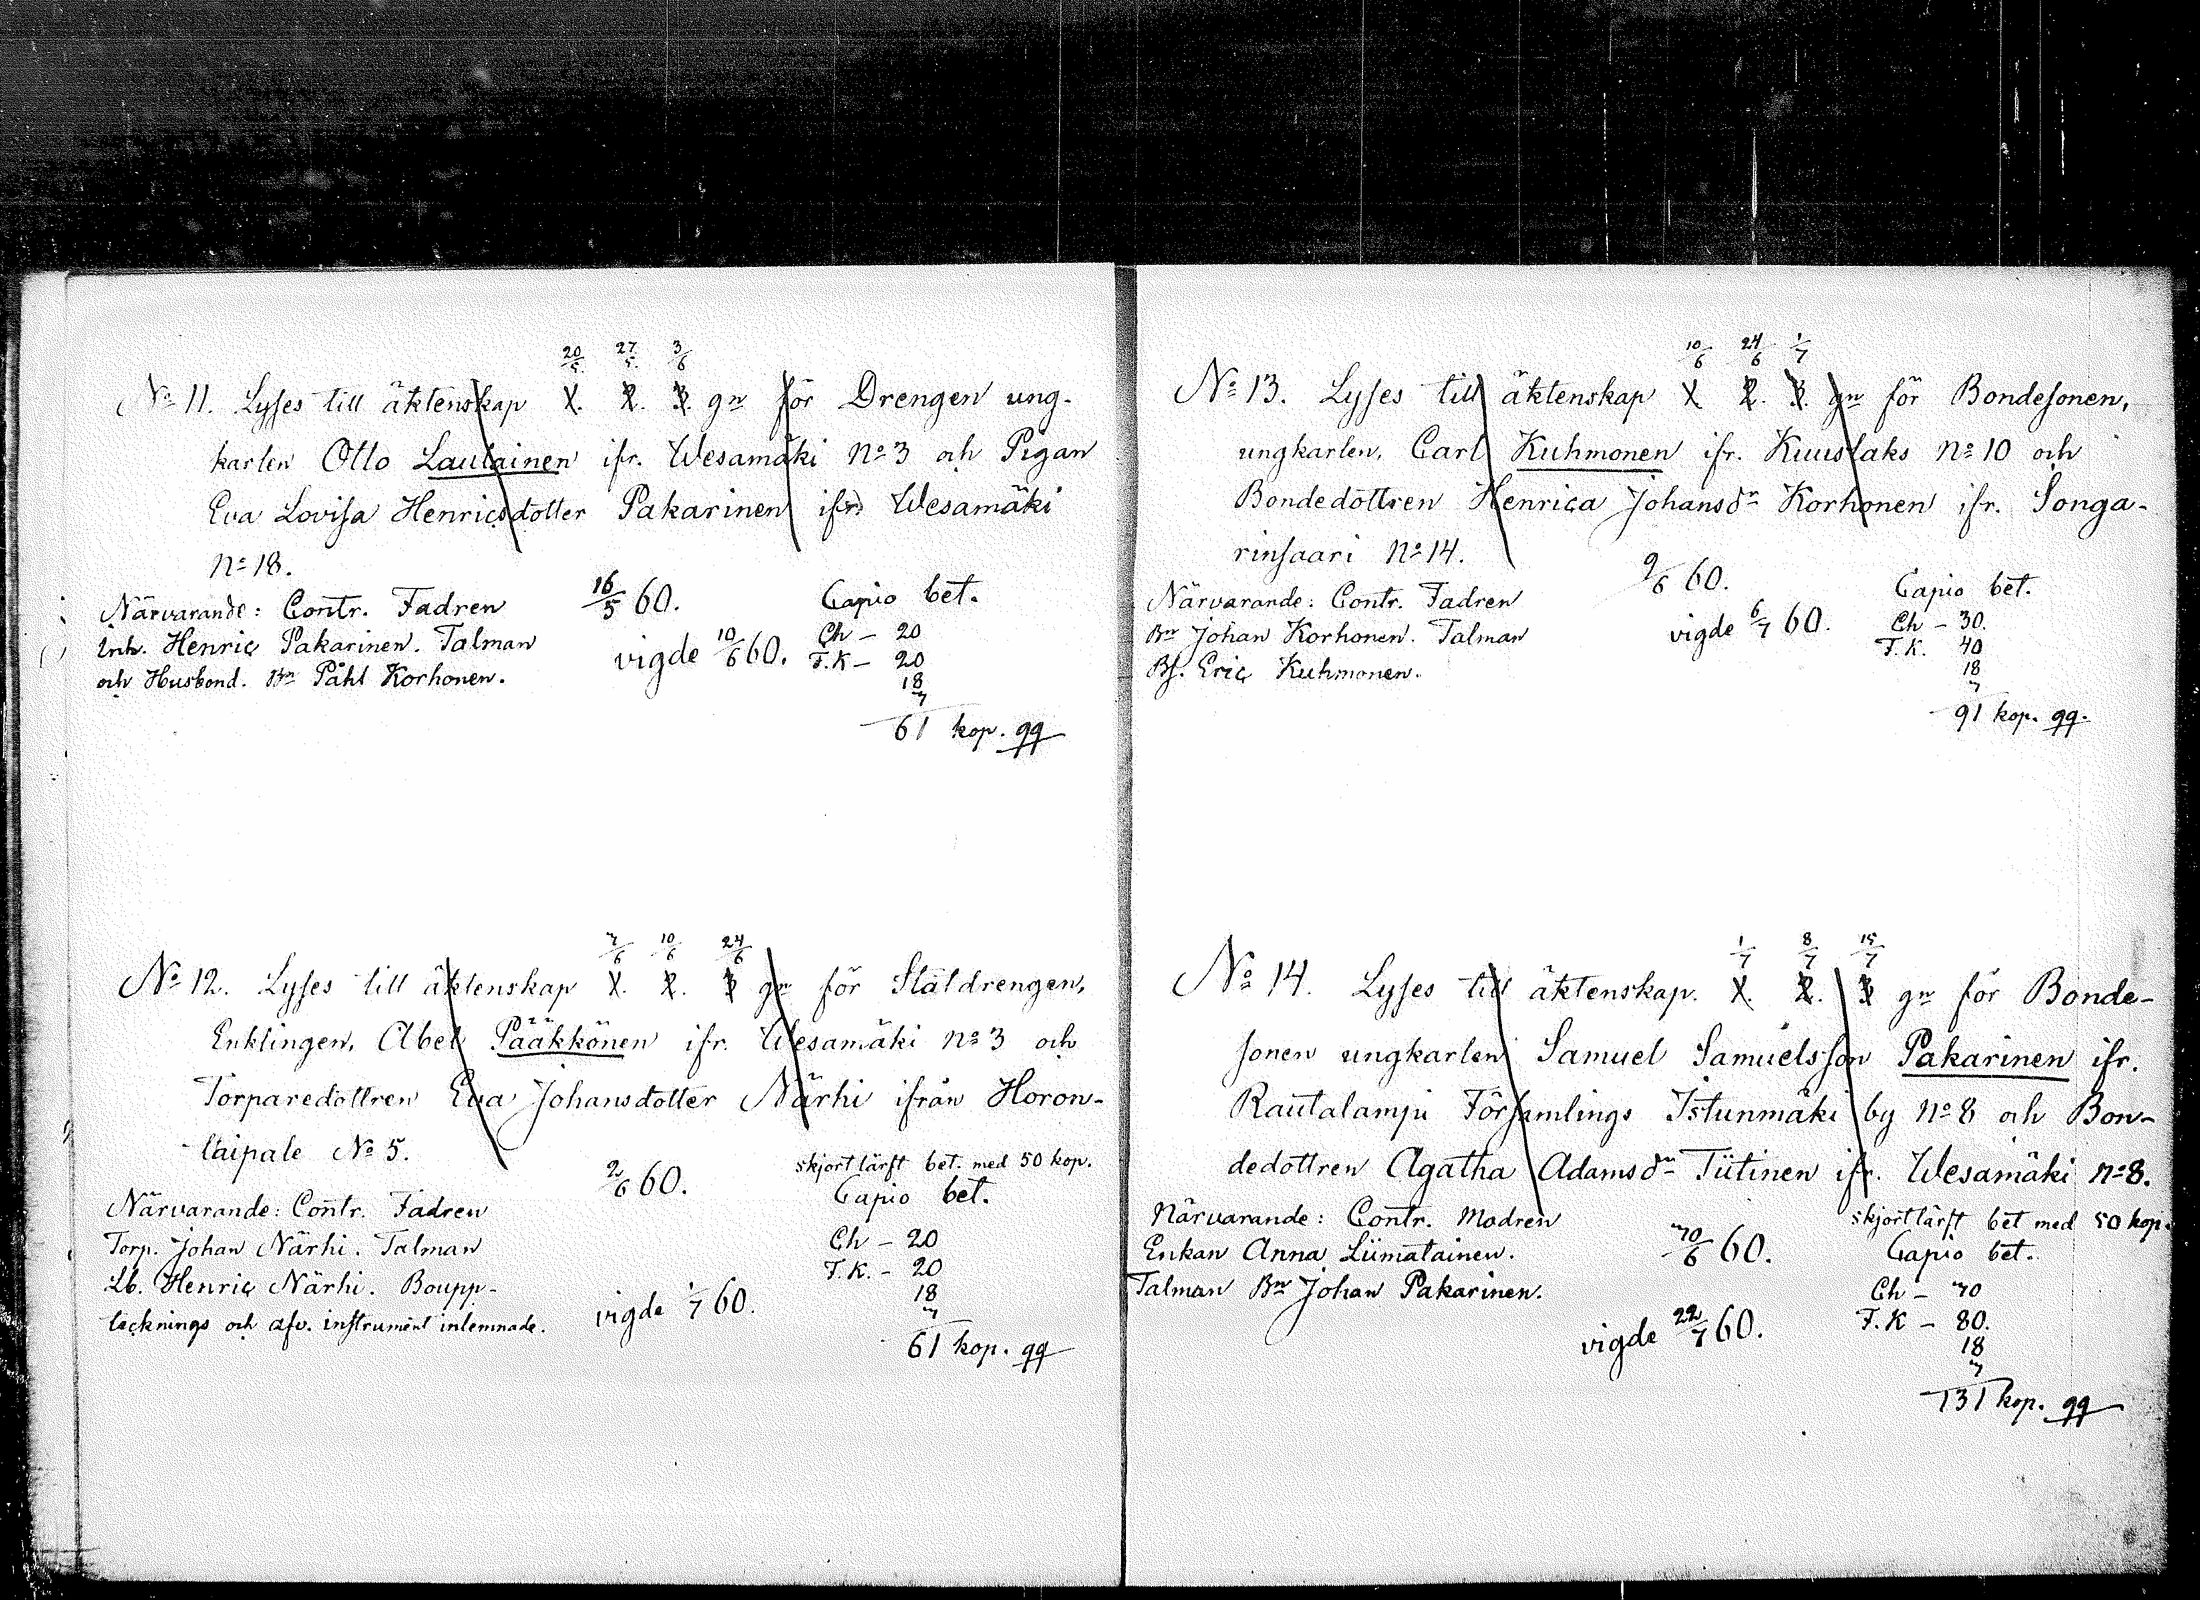 20/5 27/5 3/6
No 11. Lyses till äktenskap 1. 2. 3. gn för Drengen ung-
karlen Otto Laulainen ifr. Wesamäki no 3 och Pigan
Eva Lovisa Henricsdotter Pakarinen ifr. Wesamäki
no 18.
Närvarande: Contr. Fadren
Inh. Henric Pakarinen. Talman
och Husbond. Bn Påhl Korhonen.
16/5 60.
vigde 10/6 60.
Capio bet.
Ch - 20
F.K - 20
18
3
61 kop. qq
7/6 10/6 24/6
No 12. Lyses till äktenskap 1. 2. 3 gn för Ståldrengen,
Enklingen, Abel Pääkkönen ifr. Wesamäki no 3 och
Torparedottren Eva Johansdotter Närhi ifrån Horon-
taipale No 5.
Närvarande: Contr. Fadren
Torp. Johan Närhi. Talman
Lb. Henric Närhi. Boupp-
tecknings och afv. instrument inlemnade.
2/6 60.
vigde 1/7 60.
skjortlärft bet. med 50 kop.
Capio bet.
Ch - 20
F.K. - 20
18
3
61 kop. qq
10/6 24/6 1/7
No 13. Lyses till äktenskap 1 2. 3. gn för Bondesonen,
ungkarlen, Carl Kuhmonen ifr. Kuuslaks no 10 och
Bondedottren Henrica Johansdr Korhonen ifr. Songa-
rinsaari no 14.
Närvarande: Contr. Fadren
Bn Johan Korhonen. Talman
Bs. Eric Kuhmonen.
9/6 60.
vigde 6/7 60.
Capio bet.
Ch - 30.
F.K. 40
18
3
91 kop. qq.
1/7 8/7 15/7
No 14. Lyses till äktenskap. 1. 2. 3 gn för Bonde-
sonen ungkarlen Samuel Samuelsson Pakarinen ifr.
Rautalampi Församlings Istunmäki by no 8 och Bon-
dedottren Agatha Adamsdr Tiitinen ifr. Wesamäki no 8.
Närvarande: Contr. Modren
Enkan Anna Liimatainen.
Talman Bn Johan Pakarinen.
30/6 60.
vigde 22/7 60.
skjortlärft bet med 50 kop.
Capio bet.
Ch - 30
F.K - 80.
18
3
131 kop. qq